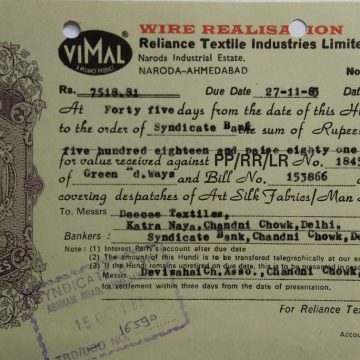 WIRE REALISATION
VIMAL
A RELIANCE PRODUCT
Reliance Textile Industries Limite
Naroda Industrial Estate,
NARODA-AHMEDABAD
No
Rs. 7518.81 Due Date 27-11-83 Dat
At Forty five days from the date of this H
to the order of Syndicate Bank the sum of Rupee
five hundred eighteen and paise eighty one
for value received against PP/RR/LR No. 1845
of Green d.Ways and Bill No. 153866 d
covering despatches of Art Silk Fabrics/Man
To Messrs Deecee Textiles,
Katra Naya, Chandni Chowk, Delhi.
Bankers : Syndicate Bank, Chandni Chowk, De
Note : (1) Interest Party's account after due date
(2) The amount of this Hundi to be transferred telegraphically at our e
(3) If the Hundi remains unretired on due date, this to be presented in
Messrs Devisahaich, Asso., Chandni Chowk,
for settlement within three days from the date of presentation.
SYNDICAT
15
16590
For Reliance Te
Accoun